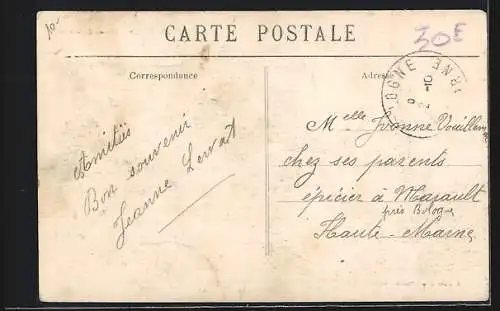 10.-
CARTE POSTALE
30E
Correspondance
Adresse
Amitiés
Bon souvenir
Jeanne
Melle Yvonne Vouillem
chez ses parents
épicier à Marault
près Bologne
Haute-Marne